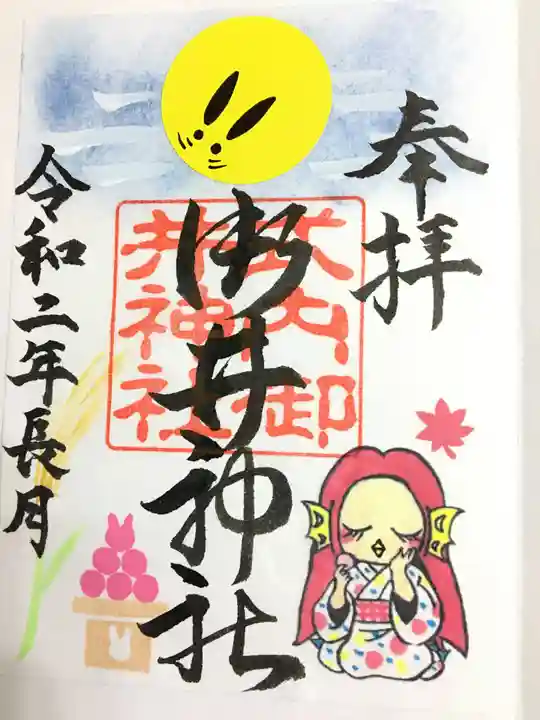 奉拝
御井神社
式内御
井神社
令和二年長月